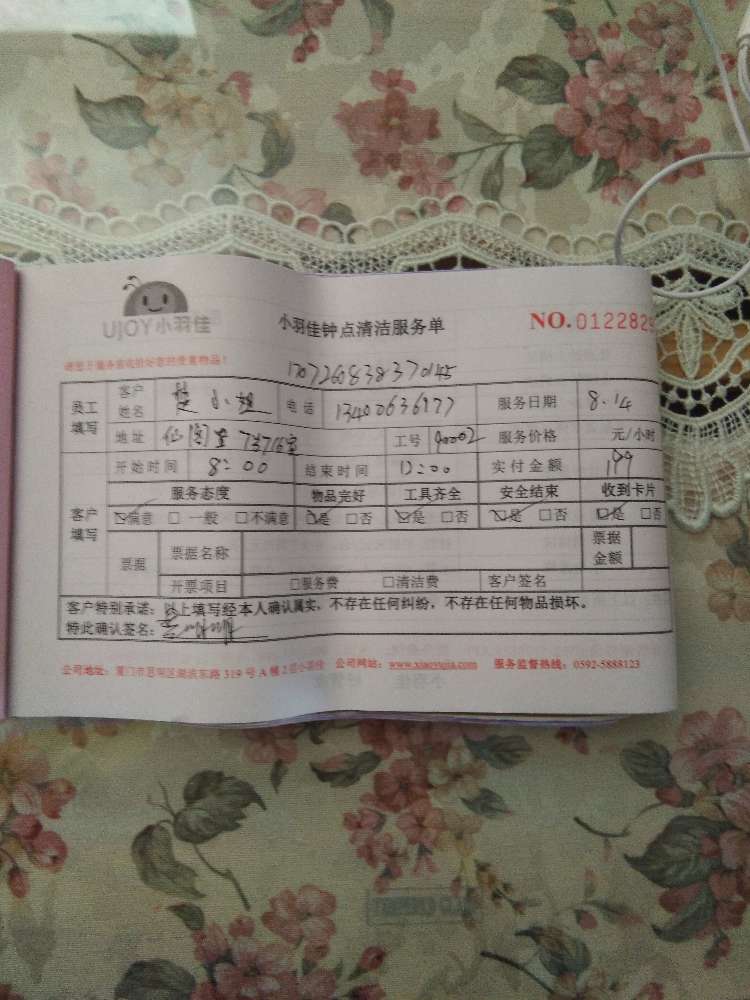 UJOY小羽佳
小羽佳钟点清洁服务单
NO. 0122829
请您开服务前收拾好您的贵重物品!
17072608383370145
员工填写 客户姓名 楚小姐 电话 13400636977 服务日期 8.14
地址 7栋716室 工号 90002 服务价格 元/小时
客户填写 开始时间 8:00 结束时间 12:00 实付金额 199
服务态度 物品完好 工具齐全 安全结束 收到卡片
☑满意 □一般 □不满意 ☑是 □否 ☑是 □否 ☑是 □否 ☑是 □否
票据 票据名称 票据金额
开票项目 □服务费 □清洁费 客户签名
客户特别承诺:以上填写经本人确认属实,不存在任何纠纷,不存在任何物品损坏。
特此确认签名:
公司地址:厦门市思明区湖滨东路319号A梯2层小羽佳 公司网站:www.xiaoyujia.com 服务监督热线:0592-5888123